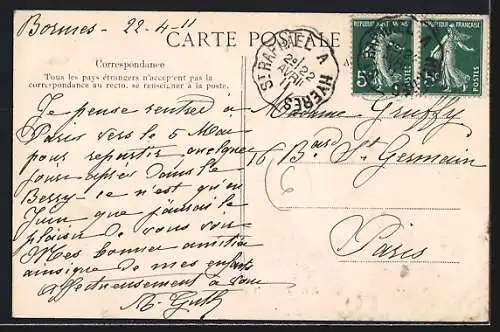 Bormes - 22-4-11
CARTE POSTALE
Correspondance
Tous les pays étrangers n'acceptent pas la
correspondance au recto, se renseigner à la poste.
ST RAPHAEL A HYERES
22
AVRIL
11
REPUBLIQUE FRANÇAISE
5
POSTES
REPUBLIQUE FRANÇAISE
5
POSTES
Je pense rentrer à
Paris vers le 5 Mai
pour repartir quelques
jours après dans le
Berry - ce n'est qu'en
Juin que j'aurai le
plaisir de vous voir
Mes bonnes amitiés
ainsi que de mes enfants
affectueusement à vous
Madame Gruffy
16 Bard St Germain
Paris
6